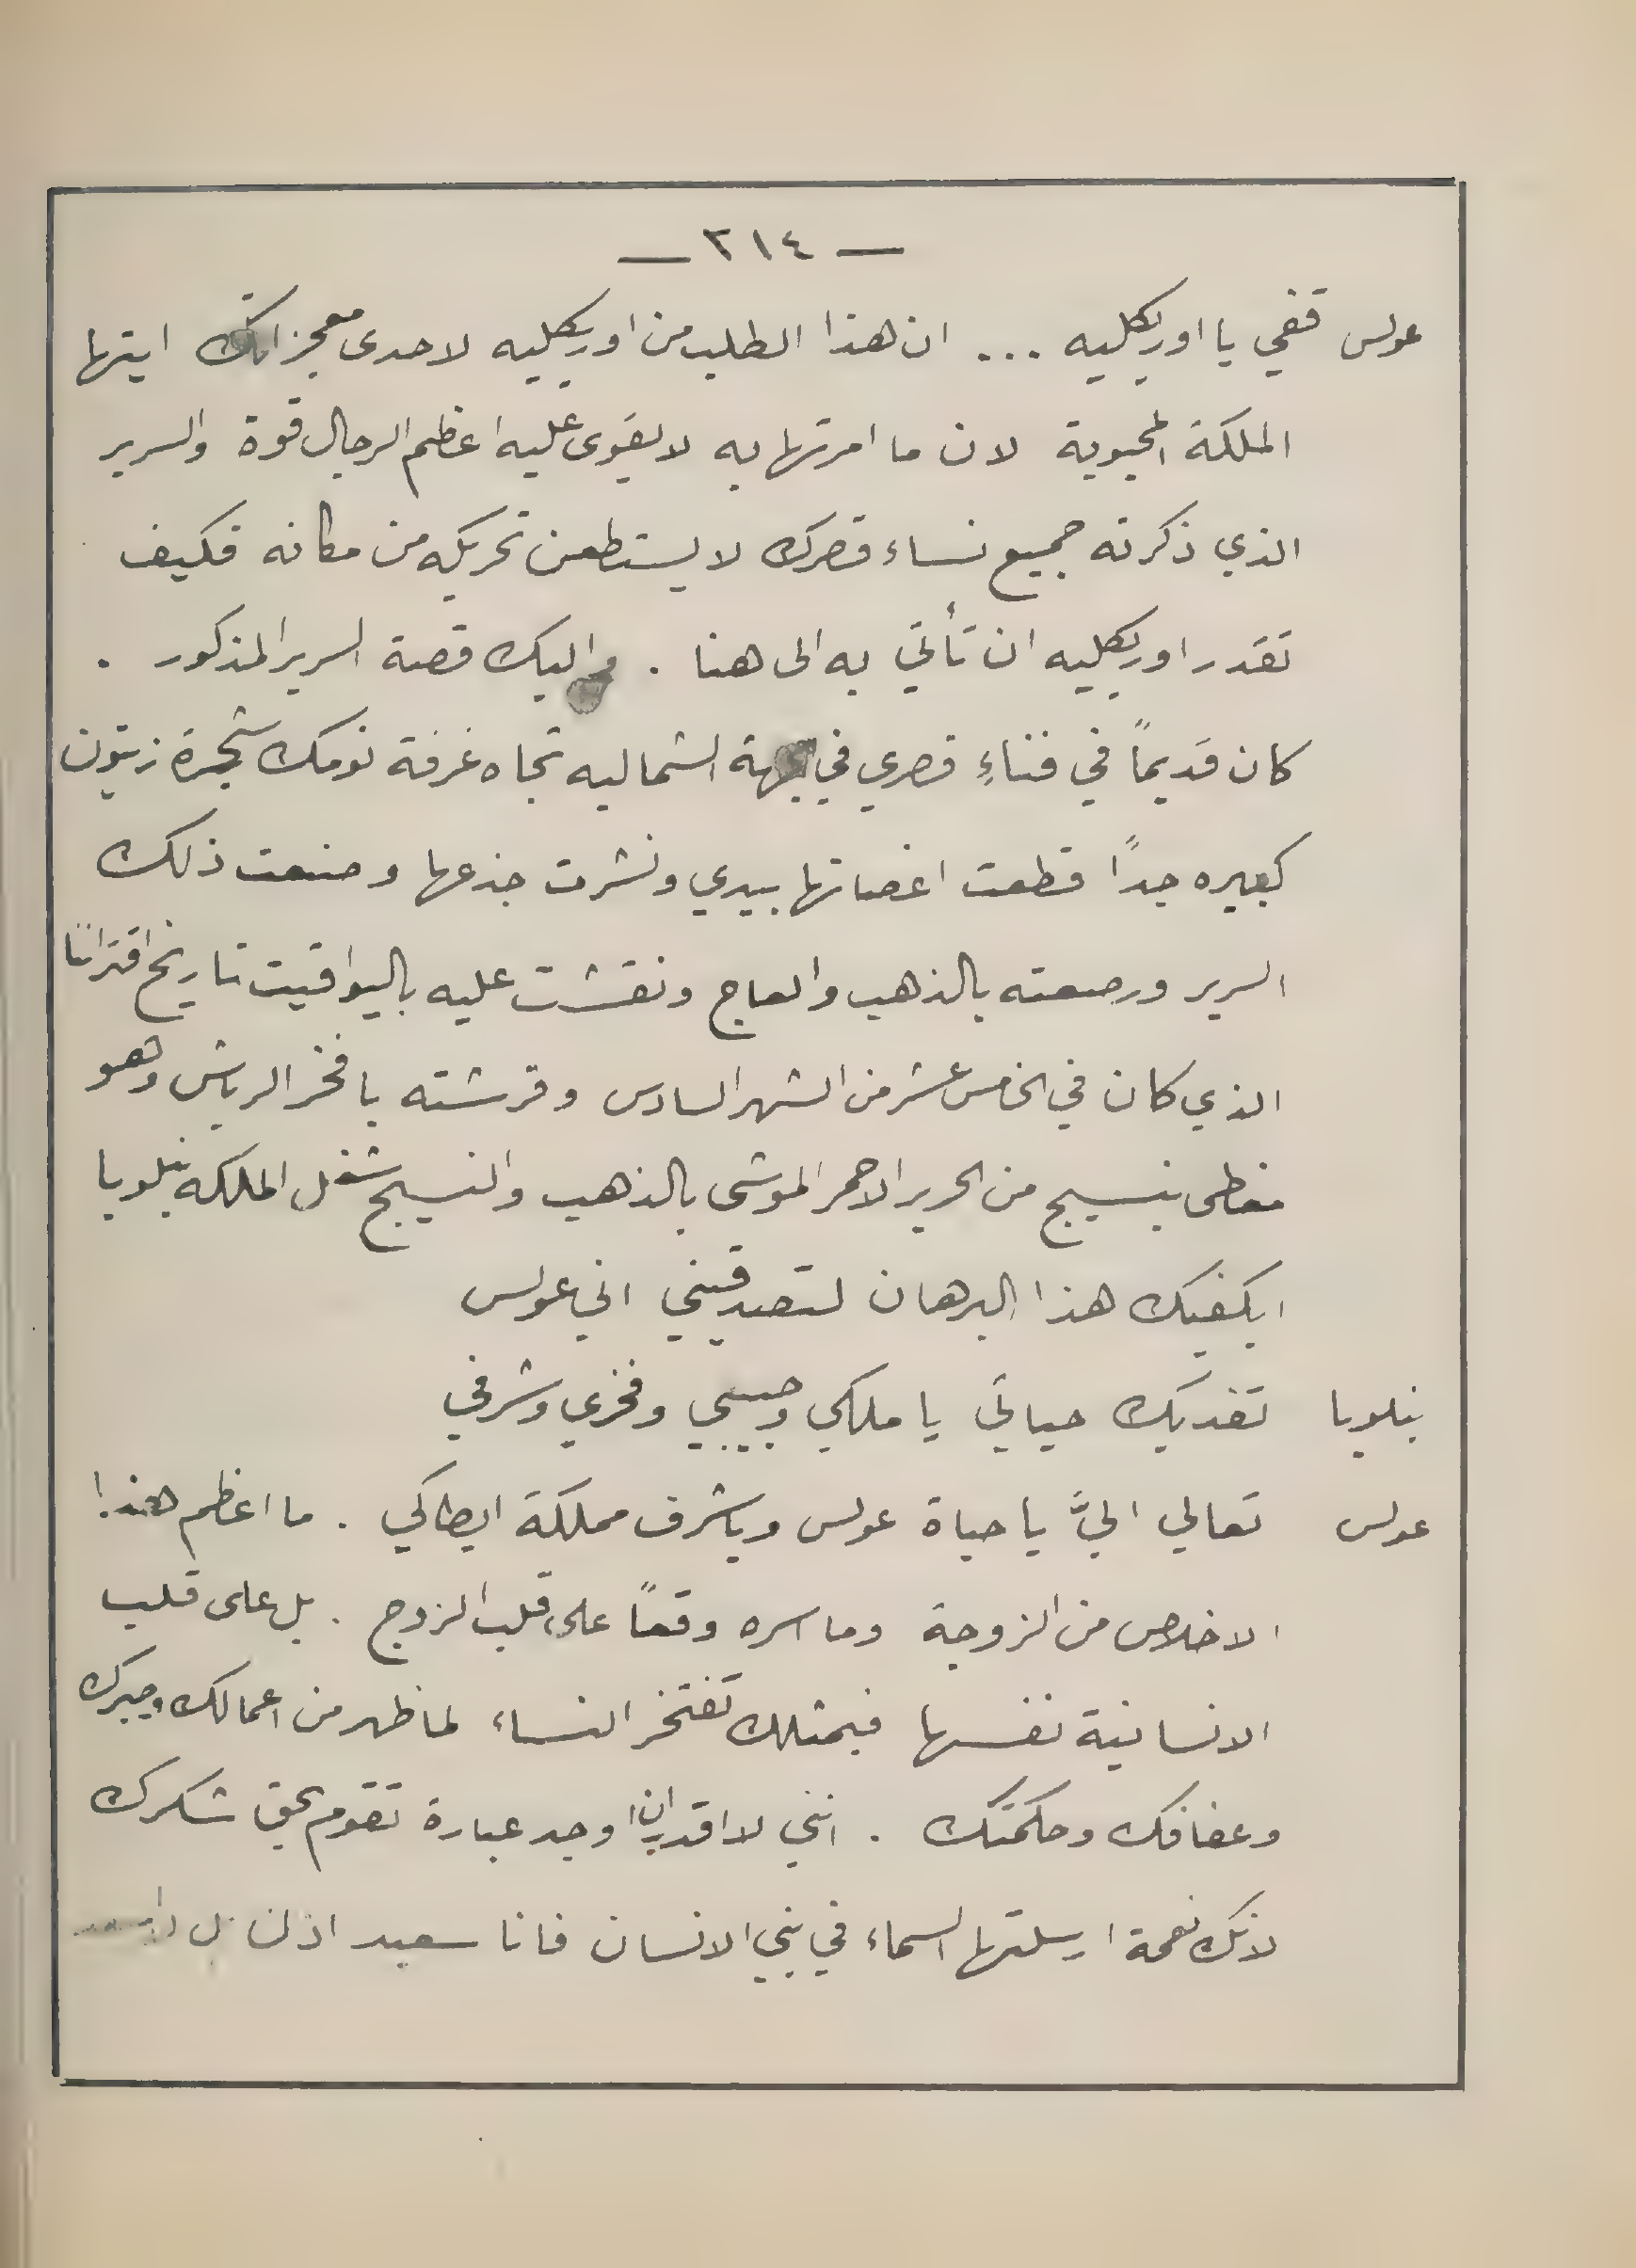 — ٣١٤ —
عولس قفي يا اوريكليه ... ان هذا الطلب من اوريكليه لاحدى معجزاتك ايتها
الملكة المحبوبة لان ما امرتها به لا يقوى عليه اعظم الرجال قوة والسرير
الذي ذكرته جميع نساء قصرك لا يستطعن تحريكه من مكانه فكيف
تقدر اوريكليه ان تأتي به الى هنا . واليك قصة السرير المذكور .
كان قديماً في فناءِ قصري في الجهة الشماليه تجاه غرفة نومك شجرة زيتون
كبيره جداً قطعت اغصانها بيدي ونشرت جذعها وصنعت ذلك
السرير ورصعته بالذهب والعاج ونقشت عليه باليواقيت تاريخ اقتراننا
الذي كان في الخامس عشر من الشهر السادس وفرشته بافخر الرياش وهو
مغطى بنسيج من الحرير الاحمر الموشى بالذهب والنسيج شغل الملكه بنلوبا
ايكفيك هذا البرهان لتصدقيني اني عولس
بنلوبا تفديك حياتي يا ملكي وحبيبي وفخري وشرفي
عولس تعالي اليَّ يا حياة عولس ويا شرف مملكة ايطاكي . ما اعظم هذا
الاخلاص من الزوجة وما اسره وقعاً على قلب الزوج . بل على قلب
الانسانية نفسها فبمثلك تفتخر النساء لما ظهر من اعمالك وصبرك
وعفافك وحكمتك . انني لا اقدر ان اوجد عبارة تقوم بحق شكرك
لانك نعمة ارسلتها السماء في بني الانسان فانا سعيد اذن بل